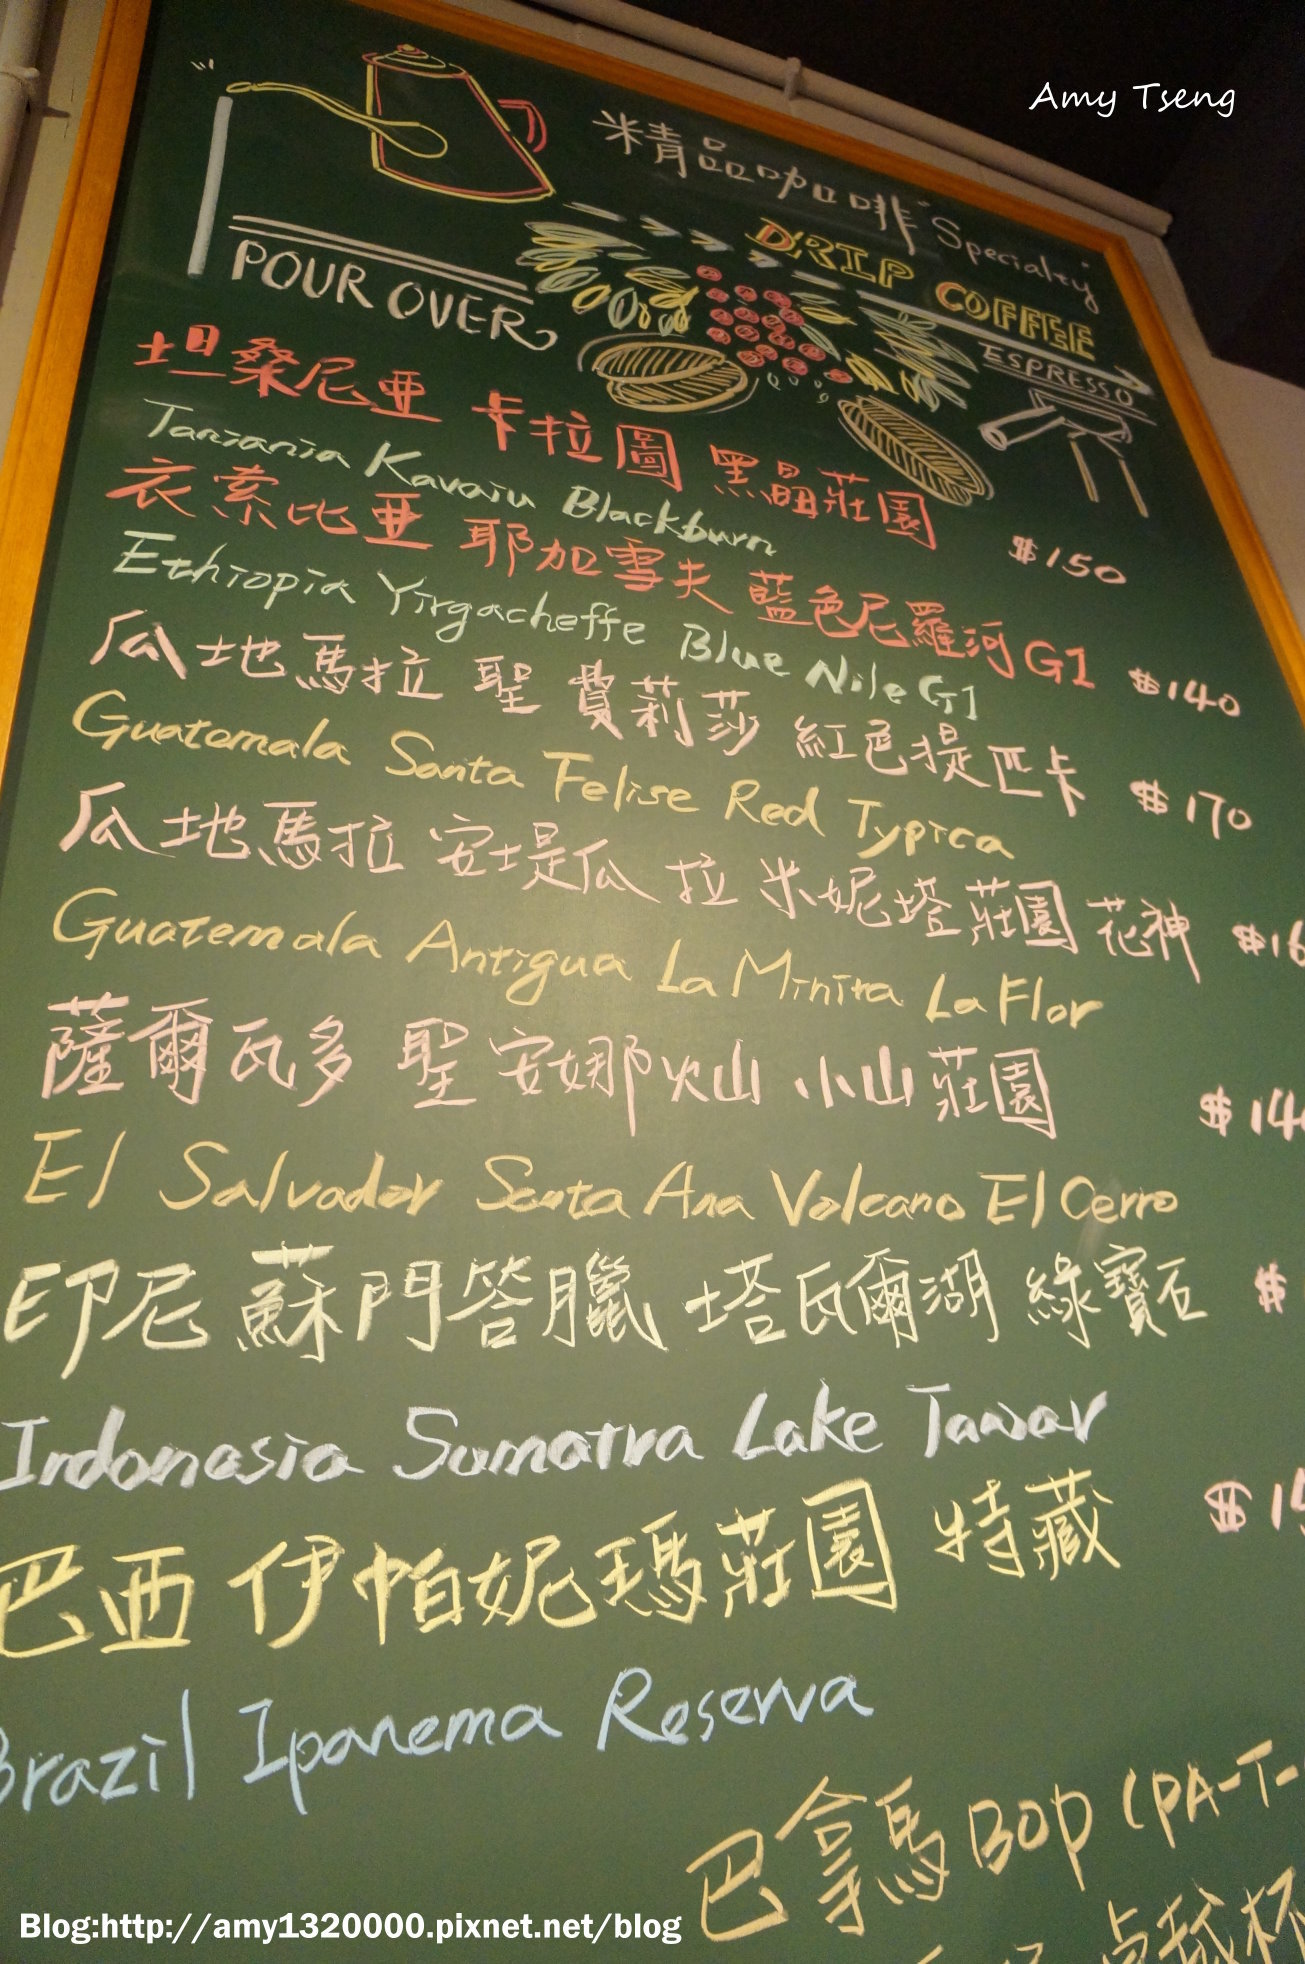 Amy Tseng
精品咖啡 "Specialty"
DRIP COFFEE
POUR OVER
ESPRESSO
坦桑尼亞 卡拉圖 黑晶莊園 $150
Tanzania Kavatu Blackburn
衣索比亞 耶加雪夫 藍色尼羅河 G1 $140
Ethiopia Yirgacheffe Blue Nile G1
瓜地馬拉 聖費莉莎 紅色提匹卡 $170
Guatemala Santa Felise Red Typica
瓜地馬拉 安堤瓜 拉米妮塔莊園 花神
Guatemala Antigua La Minita La Flor
薩爾瓦多 聖安娜火山 小山莊園
El Salvador Santa Ana Volcano El Cerro
印尼 蘇門答臘 塔瓦爾湖 綠寶石 $
Indonasia Sumatra Lake Tawar
巴西 伊帕妮瑪莊園 特藏
Brazil Ipanema Reserva
巴拿馬 BOP (PA-T-
Blog:http://amy1320000.pixnet.net/blog